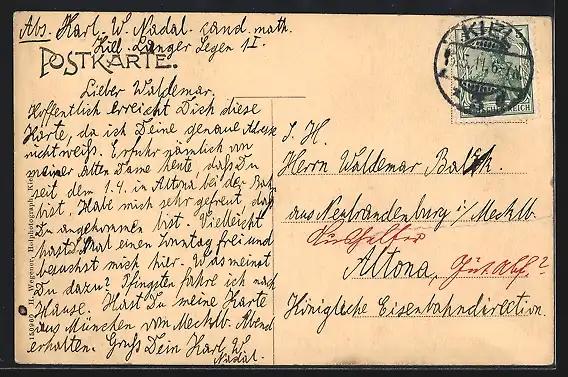 Abs. Karl. W. Nadal. cand. math.
Kiel. Langer Segen 1 I.
POSTKARTE.
Lieber Waldemar.
Hoffentlich erreicht Dich diese
Karte, da ich Deine genaue Adresse
nicht weiß. Erfuhr nämlich von
meiner alten Dame heute, daß Du
seit dem 1.4. in Altona bei der Bahn
bist. Habe mich sehr gefreut, daß
Du angekommen bist. Vielleicht
hast Du mal einen Sonntag frei und
besuchst mich hier. Was meinst
Du dazu? Pfingsten fahre ich nach
Hause. Hast Du meine Karte
aus München vom Mecklb. Abend
erhalten. Gruß Dein Karl W.
Nadal.
KIEL
5.11. 6-7
REICH
S. H.
Herrn Waldemar
aus Neubrandenburg i/Mecklb.
Aushelfer
Altona, Güt. Abf.?
Königliche Eisenbahndirection.
H. Wegener, Hofphotograph, Kiel